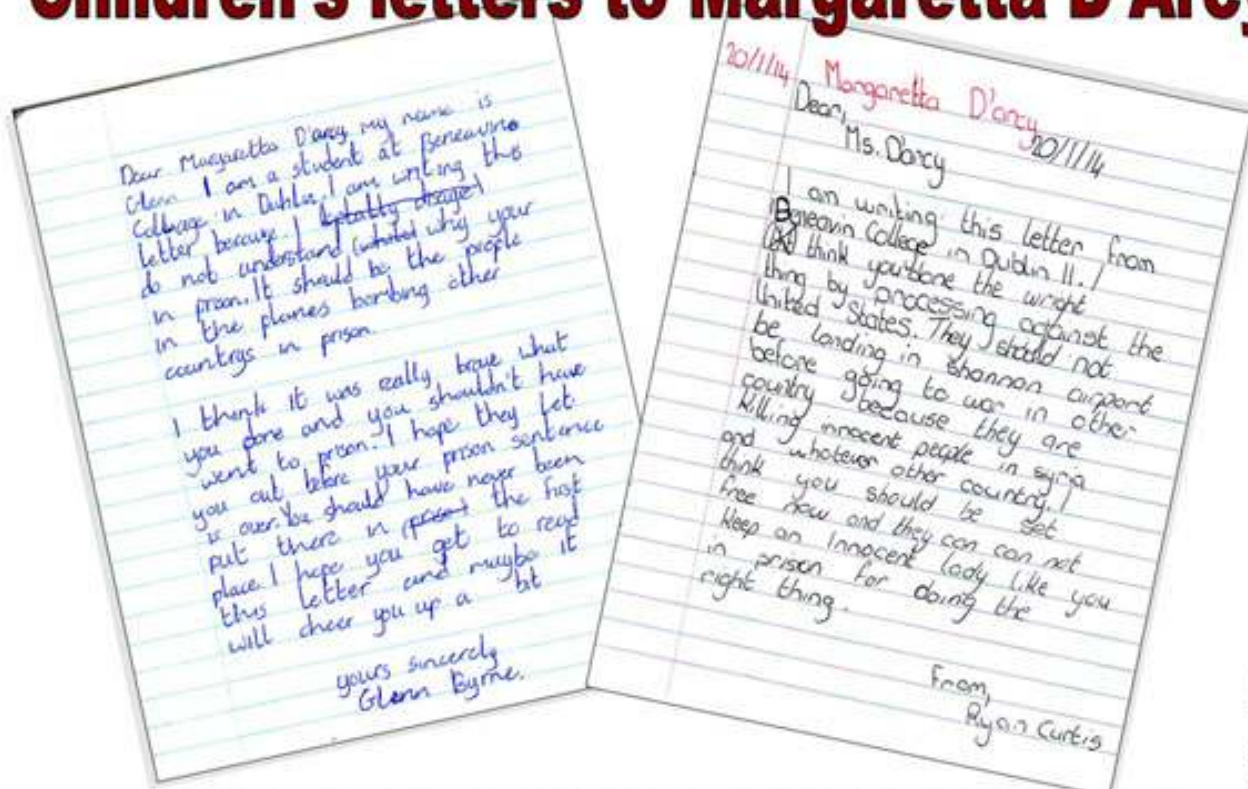 Children's letters to Margaretta D'Arcy
Dear Margaretta D'arcy my name is
Glenn I am a student at Beneavine
Colleage in Dublin, I am writing this
letter because I (totally disagel
do not understand (whtel why your
in prison. It should be the people
in the planes bombing other
countrys in prison.
I think it was really brave what
you done and you shouldn't have
went to prison. I hope they let
you out before your prison sentence
is over. You should have never been
put there in (prison) the first
place. I hope you get to read
this letter and maybe it
will cheer you up a bit
yours sincerely
Glenn Byrne.
20/1/14 Margaretta D'arcy
Dear, 20/1/14
Ms. Darcy
I am writing this letter from
Beneavin College in Dublin 11. I
think you done the wright
thing by processing against the
United States. They should not
be landing in shannon airport
before going to war in other
country because they are
killing innocent people in syria
and whatever other country. I
think you should be set
free now and they can can not
keep an innocent lady like you
in prison for doing the
right thing.
From,
Ryan Curtis